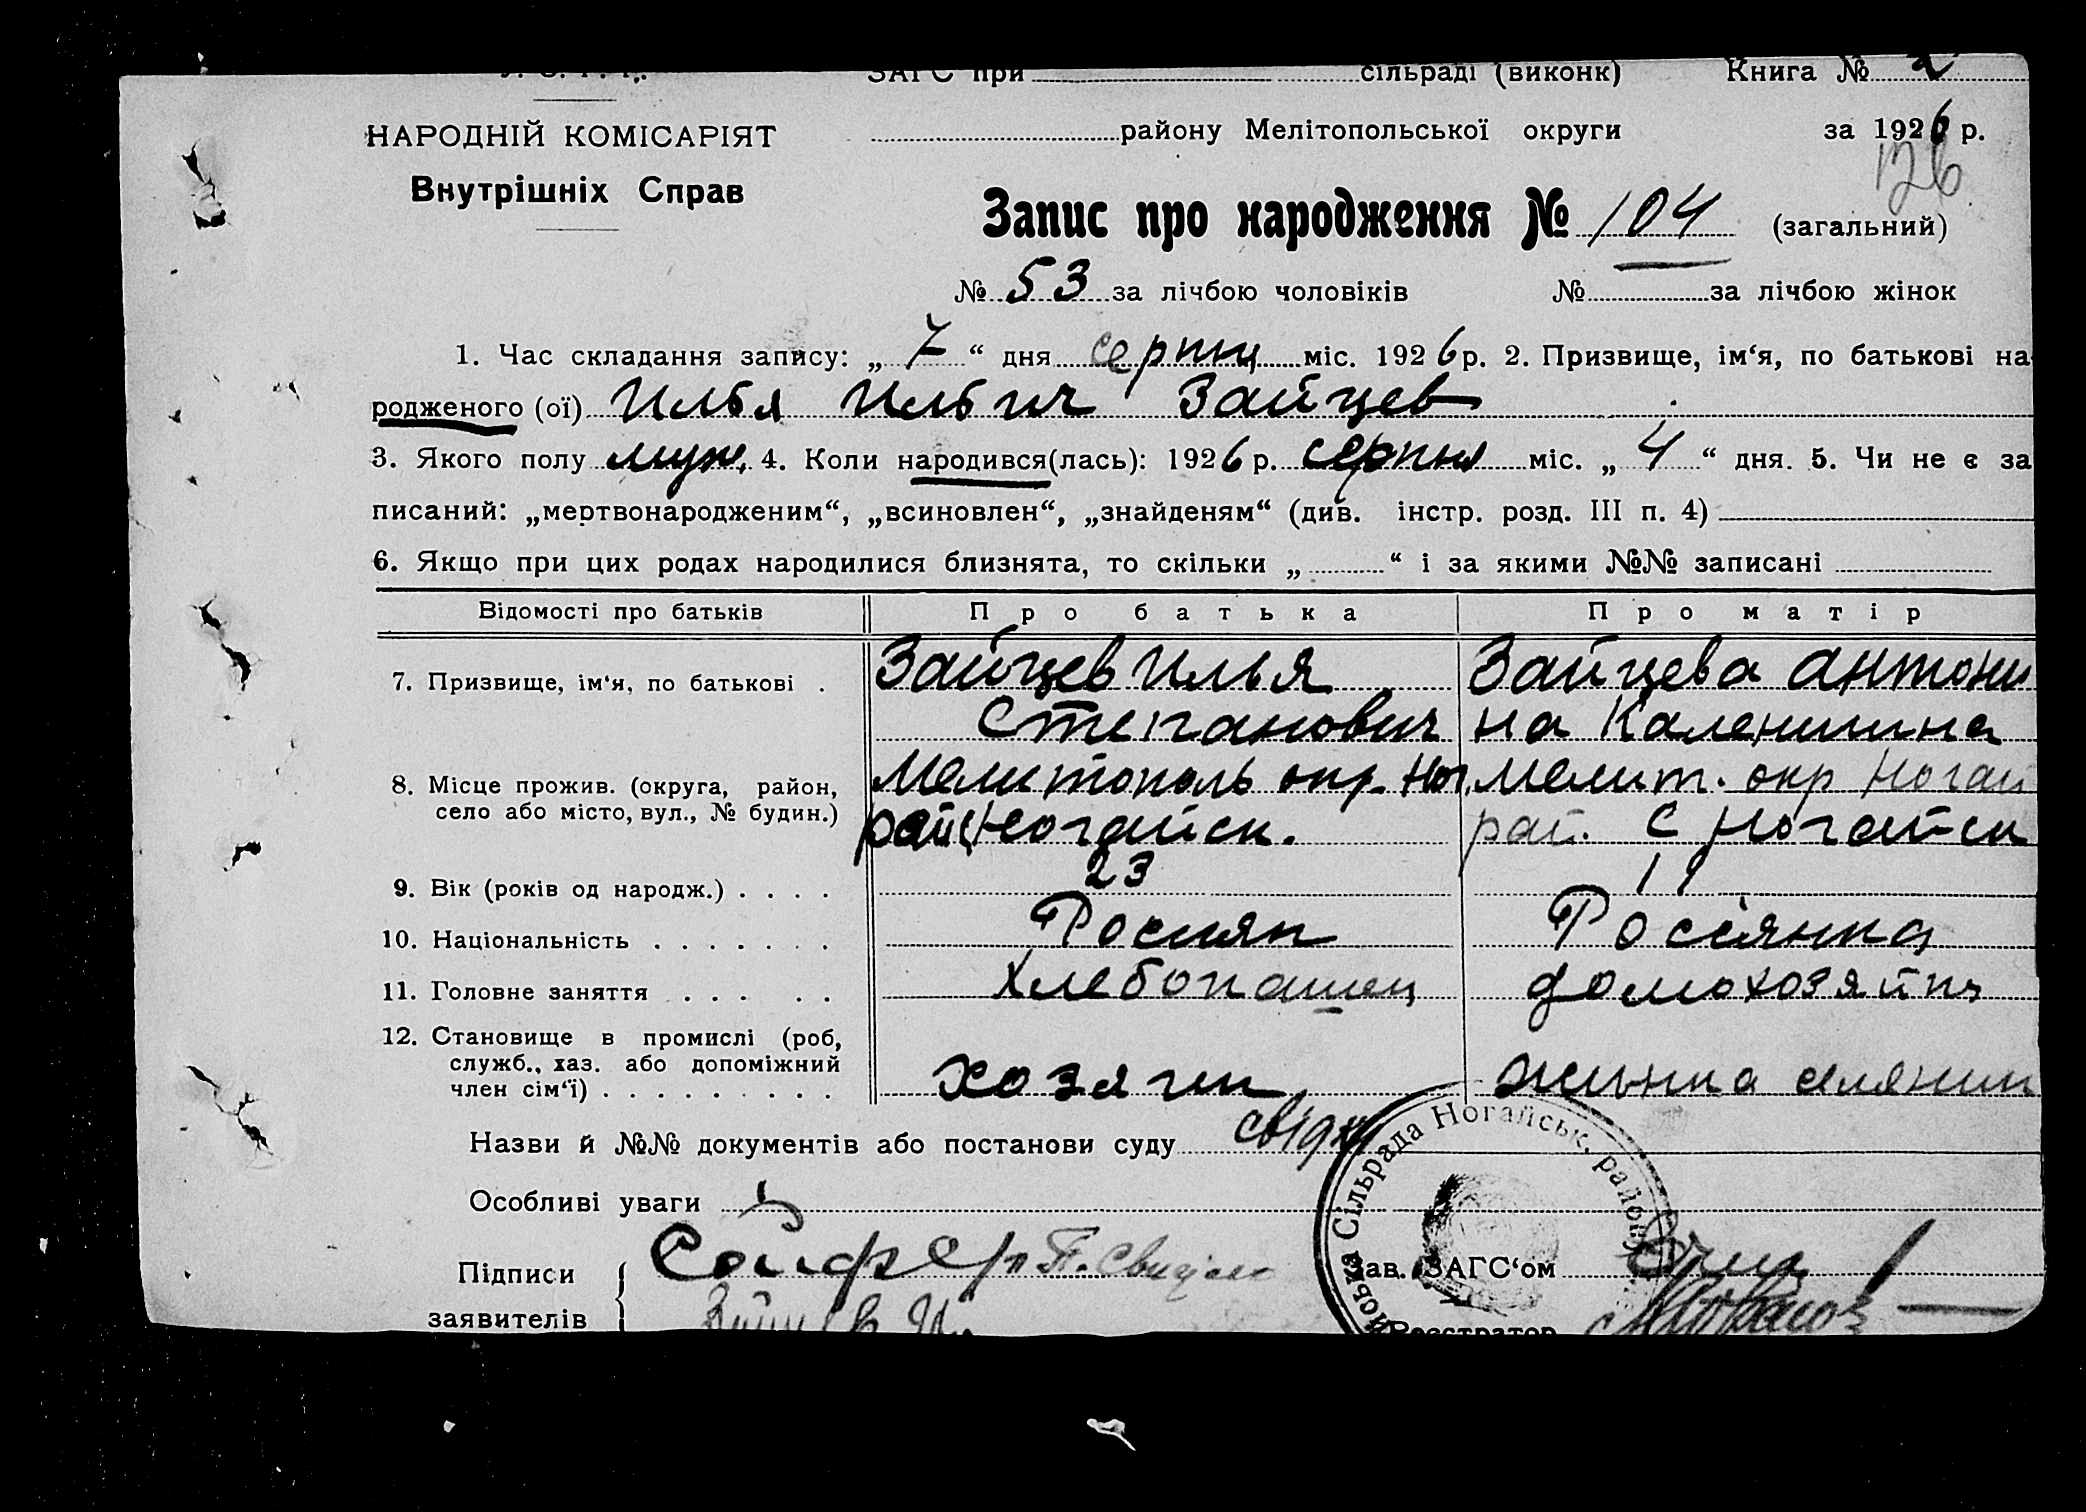 ЗАГС при сільраді (виконк) Книга № 2
НАРОДНІЙ КОМІСАРІЯТ району Мелітопольської округи за 1926 р.
126
Внутрішніх Справ
Запис про народження № 104 (загальний)
№ 53 за лічбою чоловіків № за лічбою жінок
1. Час складання запису: „ 7 “ дня серпня міс. 1926 р. 2. Призвище, ім‘я, по батькові на
родженого (ої) Илья Ильич Зайцев
3. Якого полу муж. 4. Коли народився(лась): 1926 р. серпня міс. „ 4 “ дня. 5. Чи не є за
писаний: „мертвонародженим“, „всиновлен“, „знайденям“ (див. інстр. розд. III п. 4)
6. Якщо при цих родах народилися близнята, то скільки „ “ і за якими №№ записані
Відомості про батьків Про батька Про матір
7. Призвище, ім‘я, по батькові . Зайцев Илья Зайцева Антони
Степанович на Каленишна
8. Місце прожив. (округа, район, Мелитополь окр. Ног. Мелит. окр Ногай
село або місто, вул., № будин.) рай Ногайск. рай. С Ногайск
9. Вік (років од народж.) . . . . 23 19
10. Національність . . . . . . . Росиян Росіянка
11. Головне заняття . . . . . Хлебопашец домохозяйка
12. Становище в промислі (роб,
служб., хаз. або допоміжний
член сім‘ї) . . . . . . . . . хозяин жынка селянин
Назви й №№ документів або постанови суду свідки
Особливі уваги
Сільрада Ногайськ. району
Підписи Зав. ЗАГС‘ом
заявителів Реєстратор